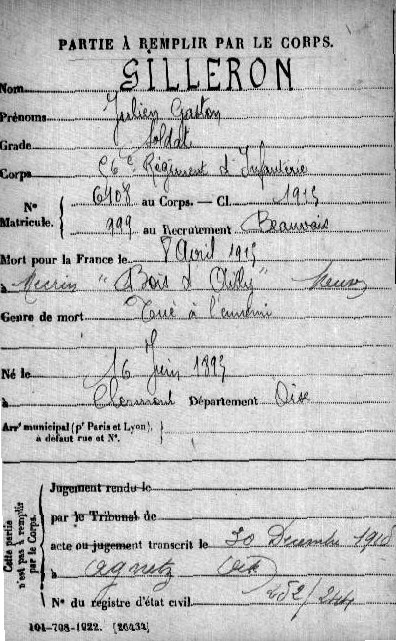 PARTIE À REMPLIR PAR LE CORPS.
Nom GILLERON
Prénoms Julien Gaston
Grade Soldat
Corps 56e Régiment d'Infanterie
N° Matricule. { 6908 au Corps. — Cl. 1915
999 au Recrutement Beauvais
Mort pour la France le 8 Avril 1915
à Mecrin "Bois d'Ailly" Meuse
Genre de mort Tué à l'ennemi
Né le 16 Juin 1895
à Clermont Département Oise
Arrt municipal (pr Paris et Lyon),
à défaut rue et N°.
Cette partie n'est pas à remplir par le Corps.
Jugement rendu le
par le Tribunal de
acte ou jugement transcrit le 30 Décembre 1915
à Agnetz Oise
N° du registre d'état civil 252/244
101-708-1922. [26434]